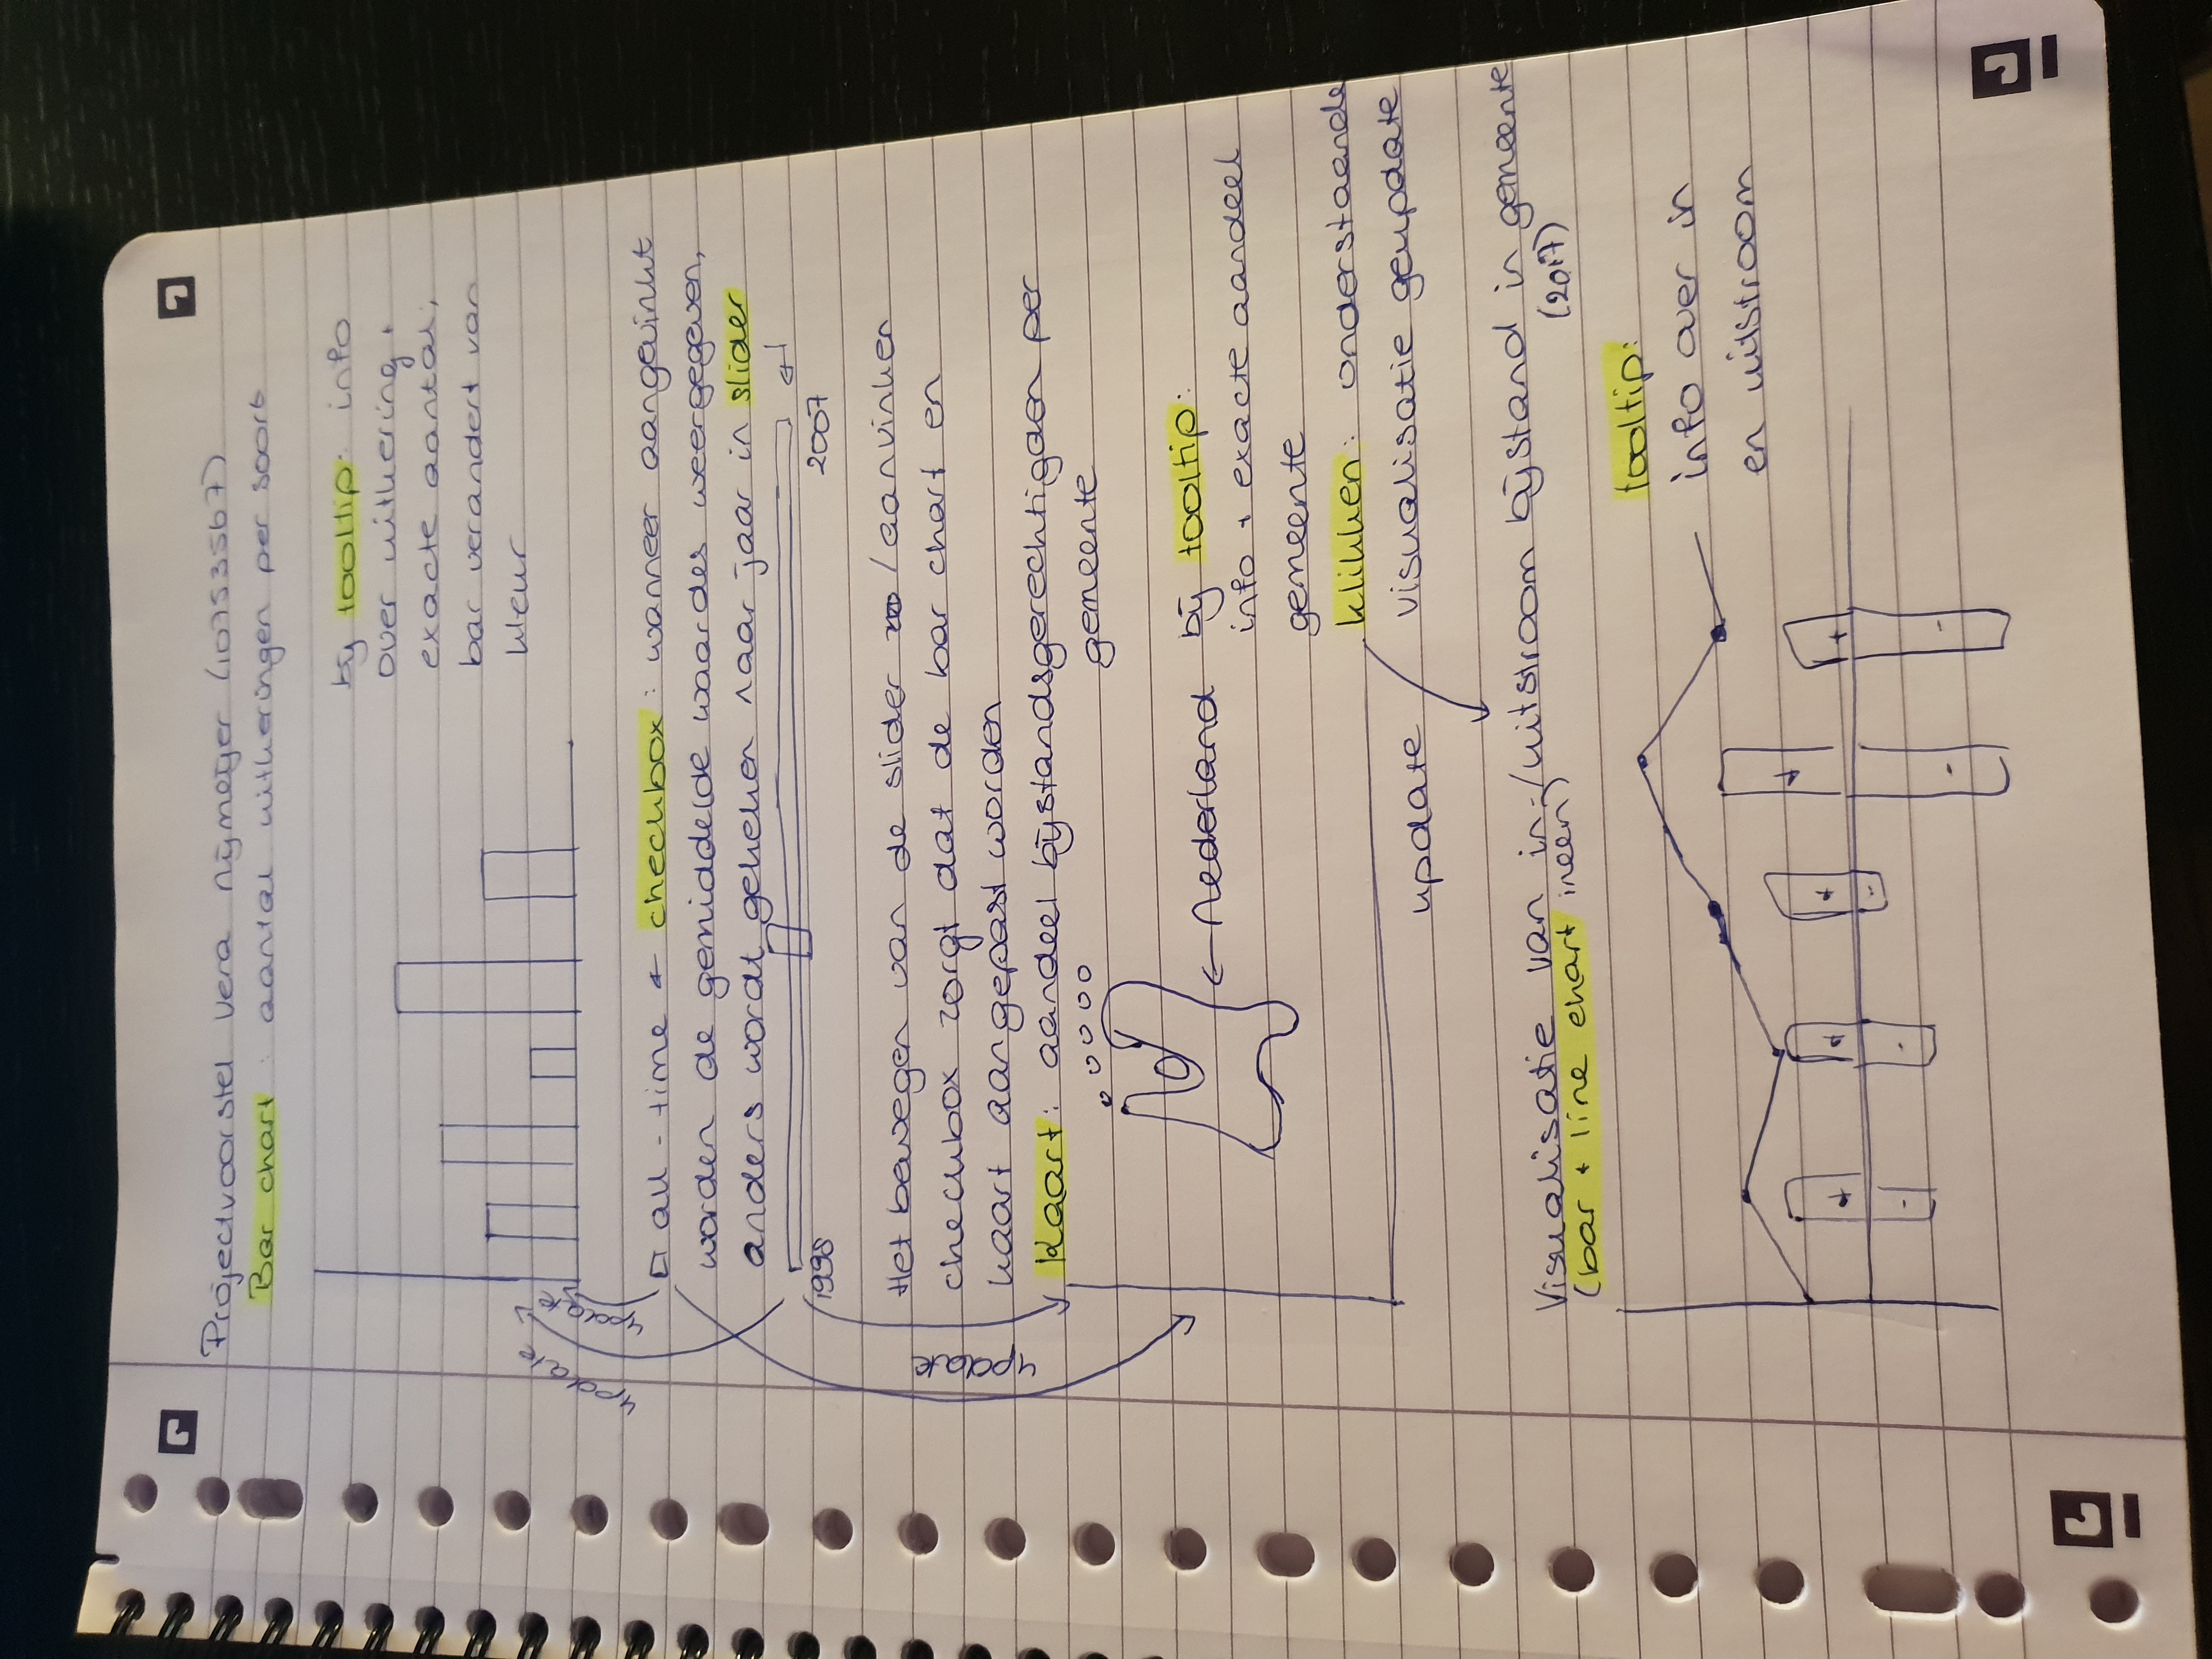 Projectvoorstel Vera Nijmeijer (10753567)
Bar chart: aantal uitkeringen per soort
bij tooltip: info
over uitkering +
exacte aantal;
bar verandert van
kleur
update
update
all-time ← checkbox: wanneer aangevinkt
worden de gemiddelde waardes weergegeven,
anders wordt gekeken naar jaar in slider
1998
2007
Het bewegen van de slider / aanvinken
checkbox zorgt dat de bar chart en
kaart aangepast worden
update
Kaart: aandeel bijstandsgerechtigden per
gemeente
← Nederland
bij tooltip:
info + exacte aandeel
gemeente
klikken: onderstaande
visualisatie geupdate
update
Visualisatie van in-/uitstroom bijstand in gemeente
(2017)
(bar + line chart ineen)
tooltip:
info over in
en uitstroom
+ + + + +
- - - - -